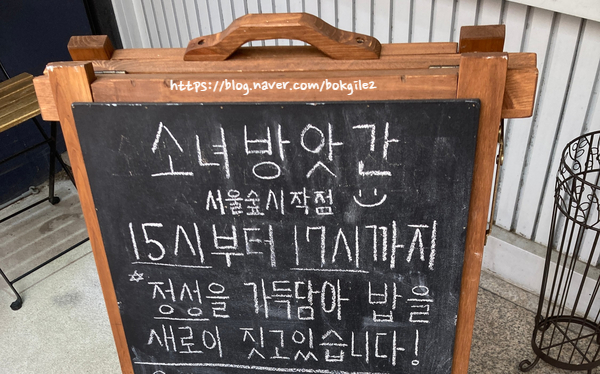 https://blog.naver.com/bokgile2
소녀방앗간
서울숲시작점
15시부터 17시까지
정성을 가득담아 밥을
새로이 짓고있습니다!